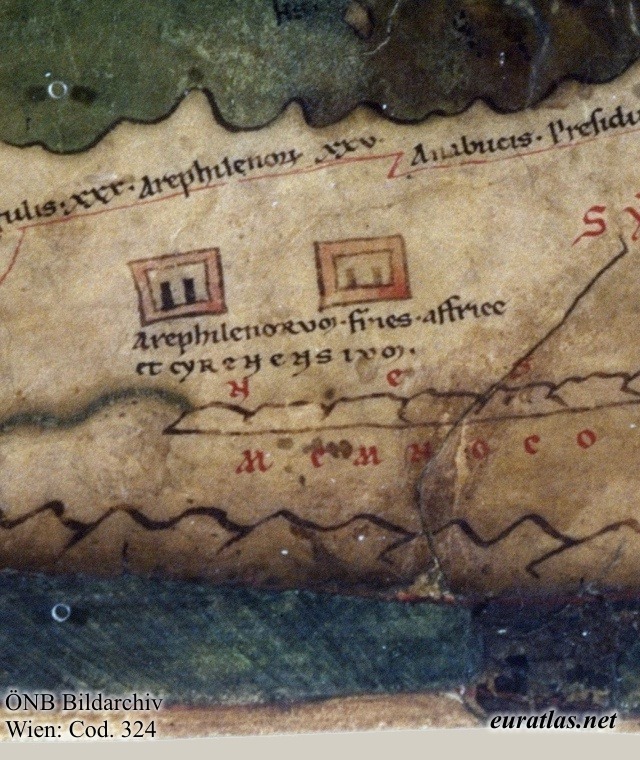 tulis·xxx· Arephilenorum xxv· Anabucis· Presidi
S
Arephilenorum· fines· affrice
et cyrenensium·
N e S
M e M N o c o
ÖNB Bildarchiv
Wien: Cod. 324
euratlas.net